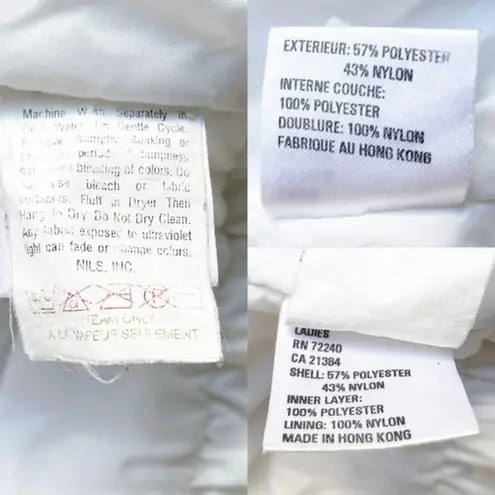 Machine Wash Separately in
Water On Gentle Cycle.
Soaking or
period of dampness
bleeding of colors. Do
use bleach or fabric
softeners. Fluff in Dryer Then
Hang To Dry. Do Not Dry Clean.
Any fabric exposed to ultraviolet
light can fade or change colors.
NILS, INC.
TEAM ONLY
A LA VAPEUR SEULEMENT
EXTERIEUR: 57% POLYESTER
43% NYLON
INTERNE COUCHE:
100% POLYESTER
DOUBLURE: 100% NYLON
FABRIQUE AU HONG KONG
LADIES
RN 72240
CA 21384
SHELL: 57% POLYESTER
43% NYLON
INNER LAYER:
100% POLYESTER
LINING: 100% NYLON
MADE IN HONG KONG